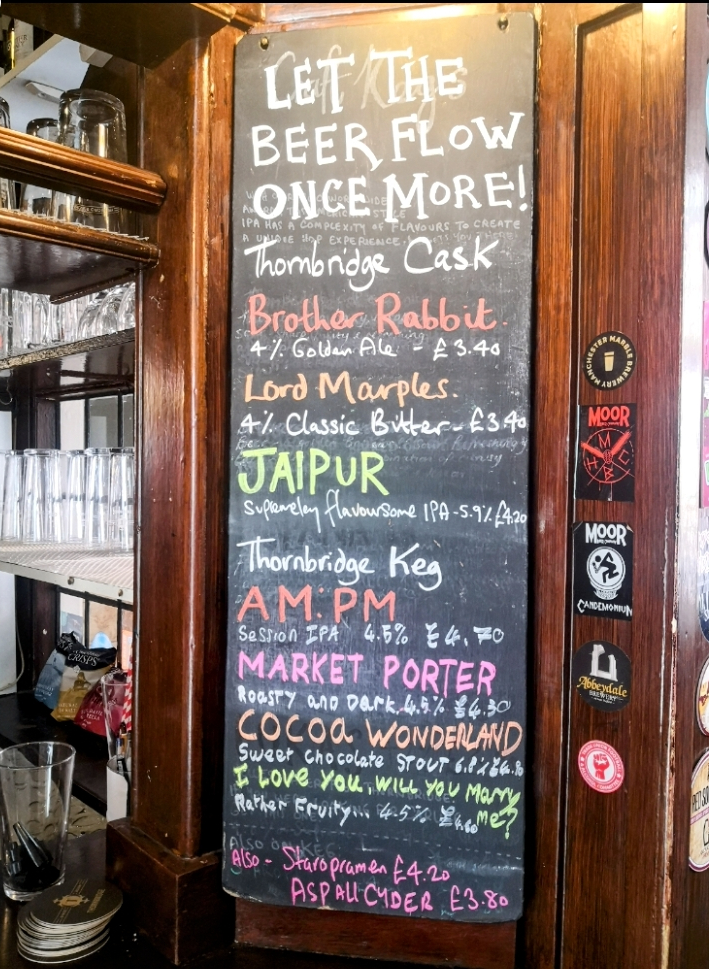 LET THE
BEER FLOW
ONCE MORE!
IPA HAS A COMPLEXITY OF FLAVOURS TO CREATE
A UNIQUE HOP EXPERIENCE,
Thornbridge Cask
Brother Rabbit.
4% Golden Ale - £3.40
Lord Marples.
4% Classic Bitter - £3.40
JAIPUR
Supremeley flavoursome IPA - 5.9% £4.20
Thornbridge Keg
AM:PM
Session IPA 4.5% £4.70
MARKET PORTER
Roasty and Dark 4.5% £4.30
COCOA WONDERLAND
Sweet Chocolate STOUT 6.8%
I LOVE YOU, WILL YOU Marry
me?
Rather Fruity... 4.5%
Also - Staropramen £4.20
ASPALL CYDER £3.80
MANCHESTER MARBLE BREWERY
MOOR
MCBH
MOOR
CANDEMONIUM
Abbeydale
BREWERY
CRISPS